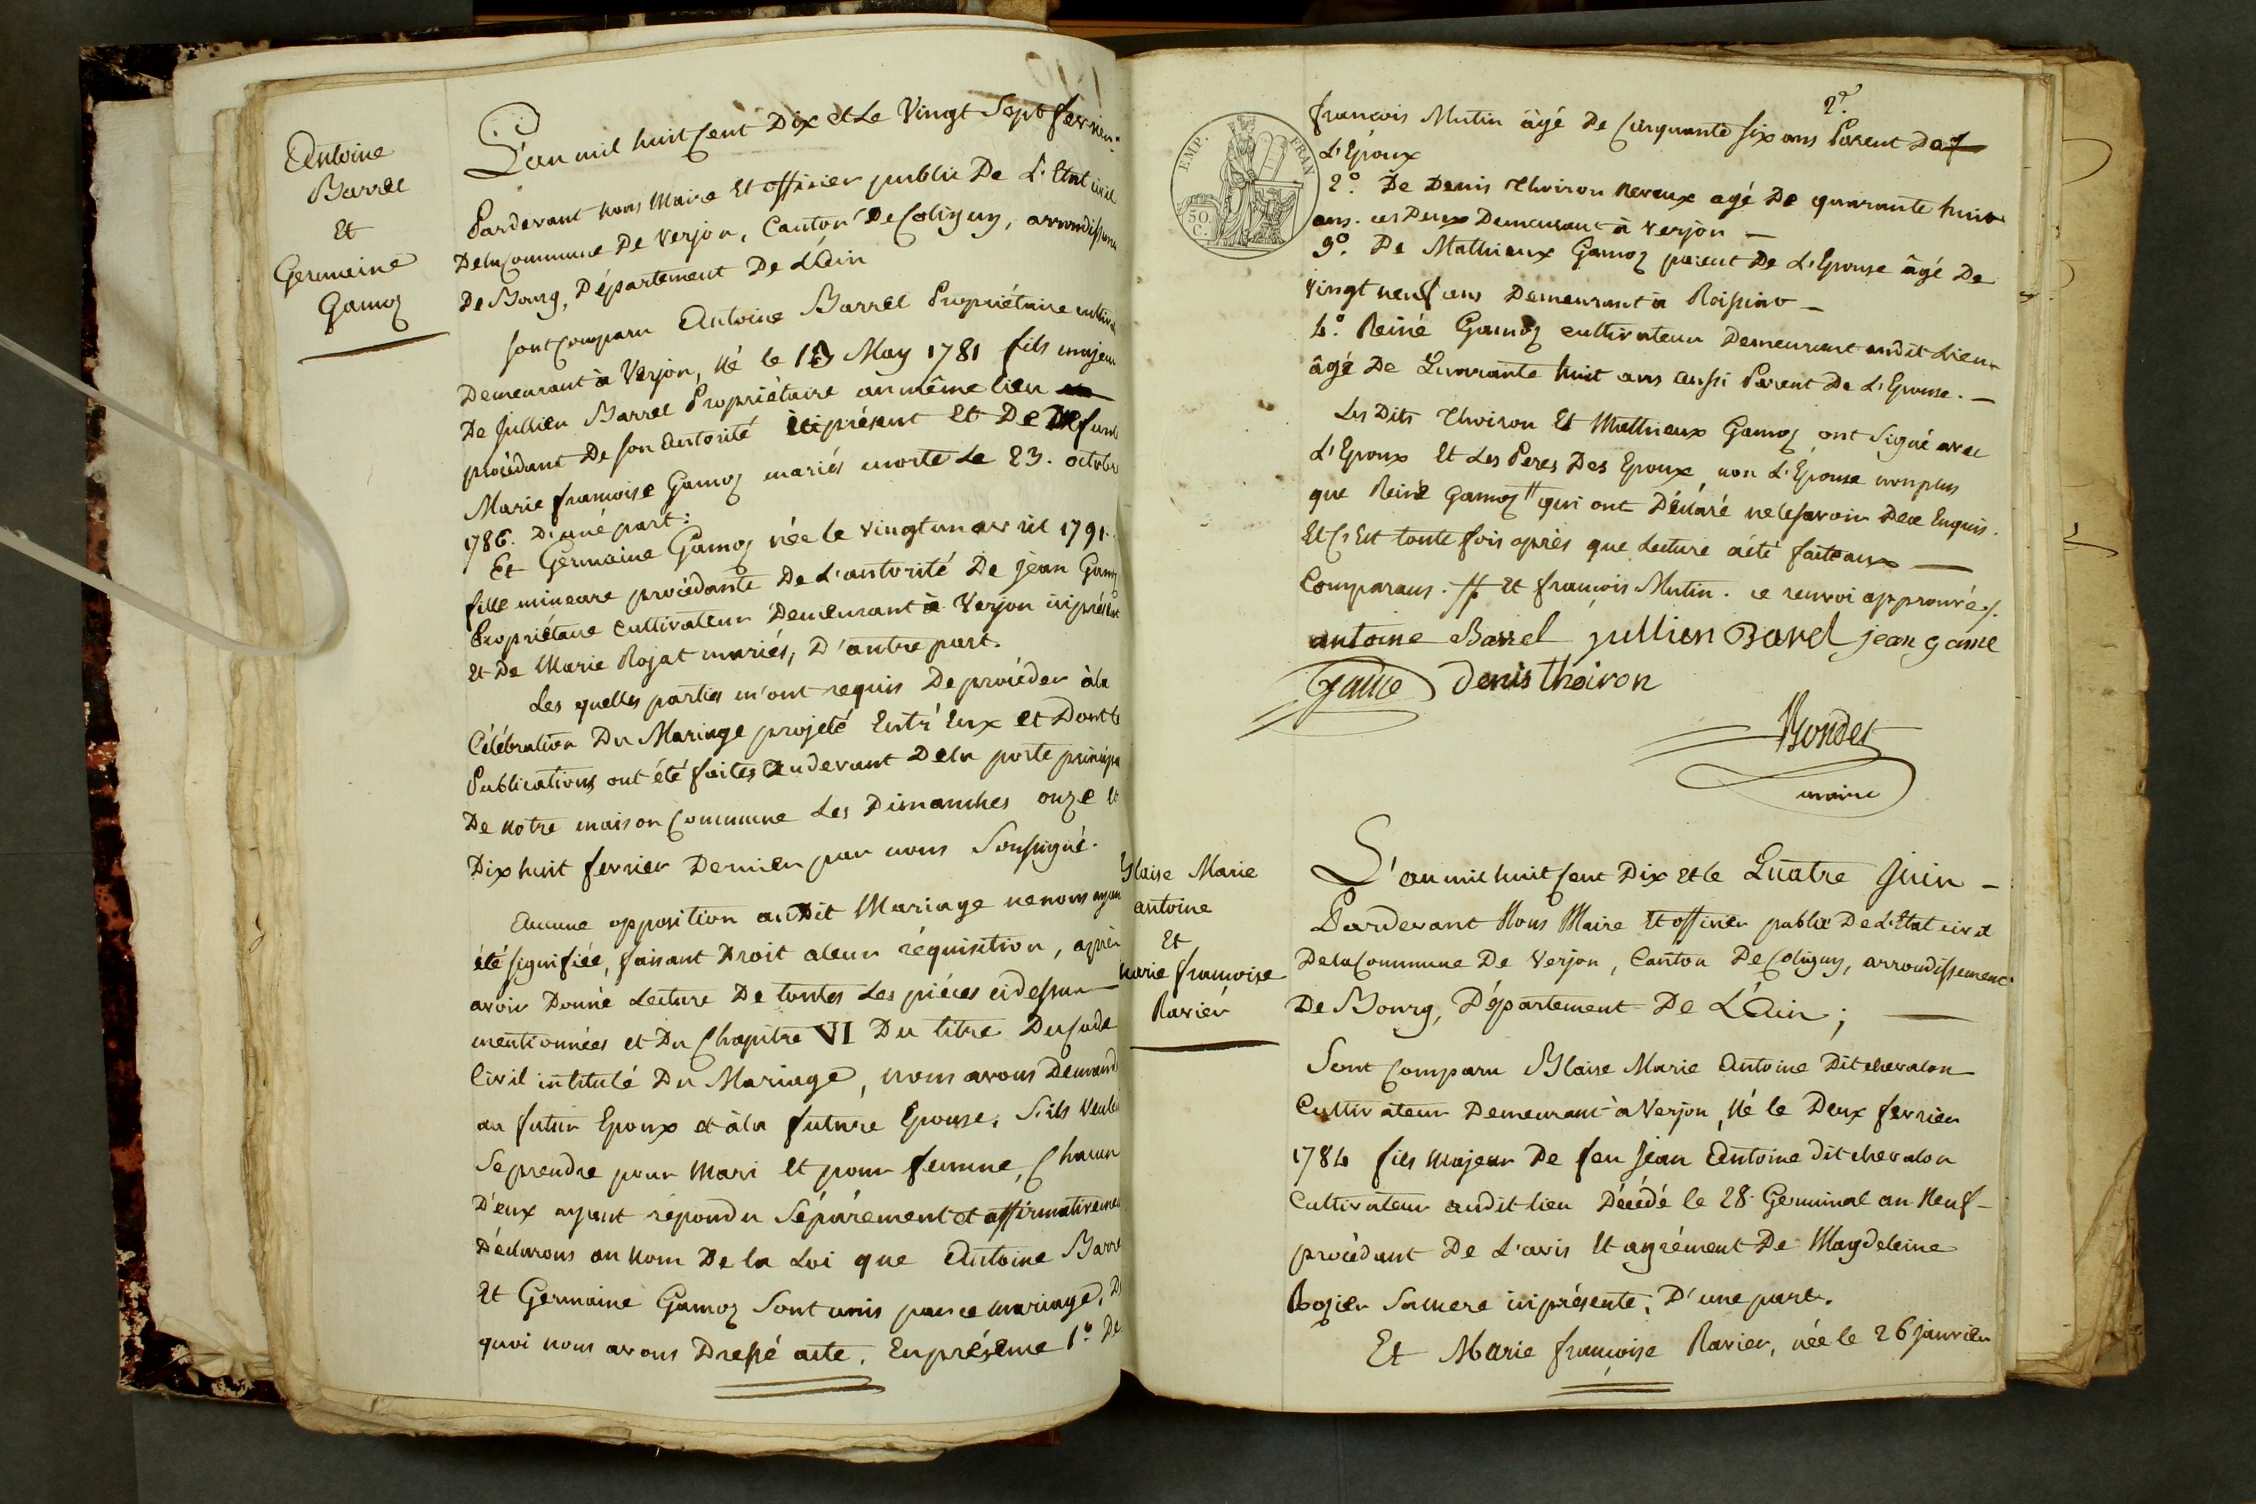 Antoine
Barrel
Et
Germaine
Gamoz
L'an mil huit cent Dix et Le Vingt Sept fevrier
Pardevant nous Maire Et officier public De L'Etat civil
De la Commune De Verjon, Canton De Coligny, arrondissem
De Bourg, Département De L'Ain
sont Comparu Antoine Barrel Propriétaire cultiva
Demeurant à Verjon, Né le May 1781 fils majeur
De Jullien Barrel Propriétaire au même lieu
procédant De son autorité ici présent Et De Defunte
Marie françoise Gamoz mariés morte Le 23. octobre
1786. D'une part:
Et Germaine Gamoz née le vingt un avril 1791.
fille mineure procédante De L'autorité De Jean Gamoz
Propriétaire cultivateur Demeurant à Verjon ici présent
Et De Marie Rojat mariés, D'autre part.
Les quelles parties m'ont requis De procéder à la
Célébration Du Mariage projeté Entr'Eux et Dont les
Publications ont été faites Audevant De la porte principa
De notre maison Commune Les Dimanches onze et
Dix huit fevrier Dernier par nous Soussigné.
Aucune opposition audit Mariage ne nous ayant
été signifiée, faisant Droit a leur réquisition, après
avoir Donné Lecture De toutes Les piéces cidessus
mentionnées et Du Chapitre VI Du titre Du Code
Civil intitulé Du Mariage, nous avons Demandé
au futur Epoux et à la future Epouse, S'ils Veulent
Se prendre pour Mari Et pour femme, Chacun
D'eux ayant répondu Séparément et affirmativement
Déclarons au Nom De la Loi que Antoine Barrel
Et Germaine Gamoz Sont unis par ce mariage, De
quoi nous avons Dressé acte, En présence 1.º De
2.e
EMP. FRAN
50. C.
françois Mutin âgé De Cinquante six ans Parent De
L'Epoux
2.º De Denis Thoiron Neveux agé De quarante huit
ans. ces Deux Demeurant à Verjon —
3.º De Mathieux Gamoz parent De L'Epouse âgé De
vingt neuf ans Demeurant à Roissiat —
4.º Reiné Gamoz cultivateur Demeurant audit Lieu
âgé De Quarante huit ans aussi Parent De L'Epouse. —
Les Dits Thoiron Et Mathieux Gamoz ont Signé avec
L'Epoux Et Les Peres Des Epoux, non L'Epouse non plus
que Reiné Gamoz // qui ont Déclaré ne le savoir De ce Enquis.
Et C'Est toute fois après que Lecture a été faite aux —
Comparans. // Et françois Mutin. ce renvoi approuvé /.
antoine Barrel jullien Barel jean game
Game Denis thoiron
Bondet
maire
Blaise Marie
Antoine
Et
Marie françoise
Ravier
L'an mil huit Cent Dix Et le Quatre Juin —
Pardevant Nous Maire Et officier public De L'Etat civil
De la Commune De Verjon, Canton De Coligny, arrondissement
De Bourg, Département De L'Ain; —
Sont Comparu Blaise Marie Antoine Dit chevalon
Cultivateur Demeurant à Verjon, Né le Deux fevrier
1784 fils Majeur De feu Jean Antoine Dit chevalon
Cultivateur audit lieu Décédé le 28. Germinal an Neuf —
procédant De L'avis Et agrément De Magdeleine
Rozier Sa mere ici présente, D'une part.
Et Marie françoise Ravier, née le 26 janvier